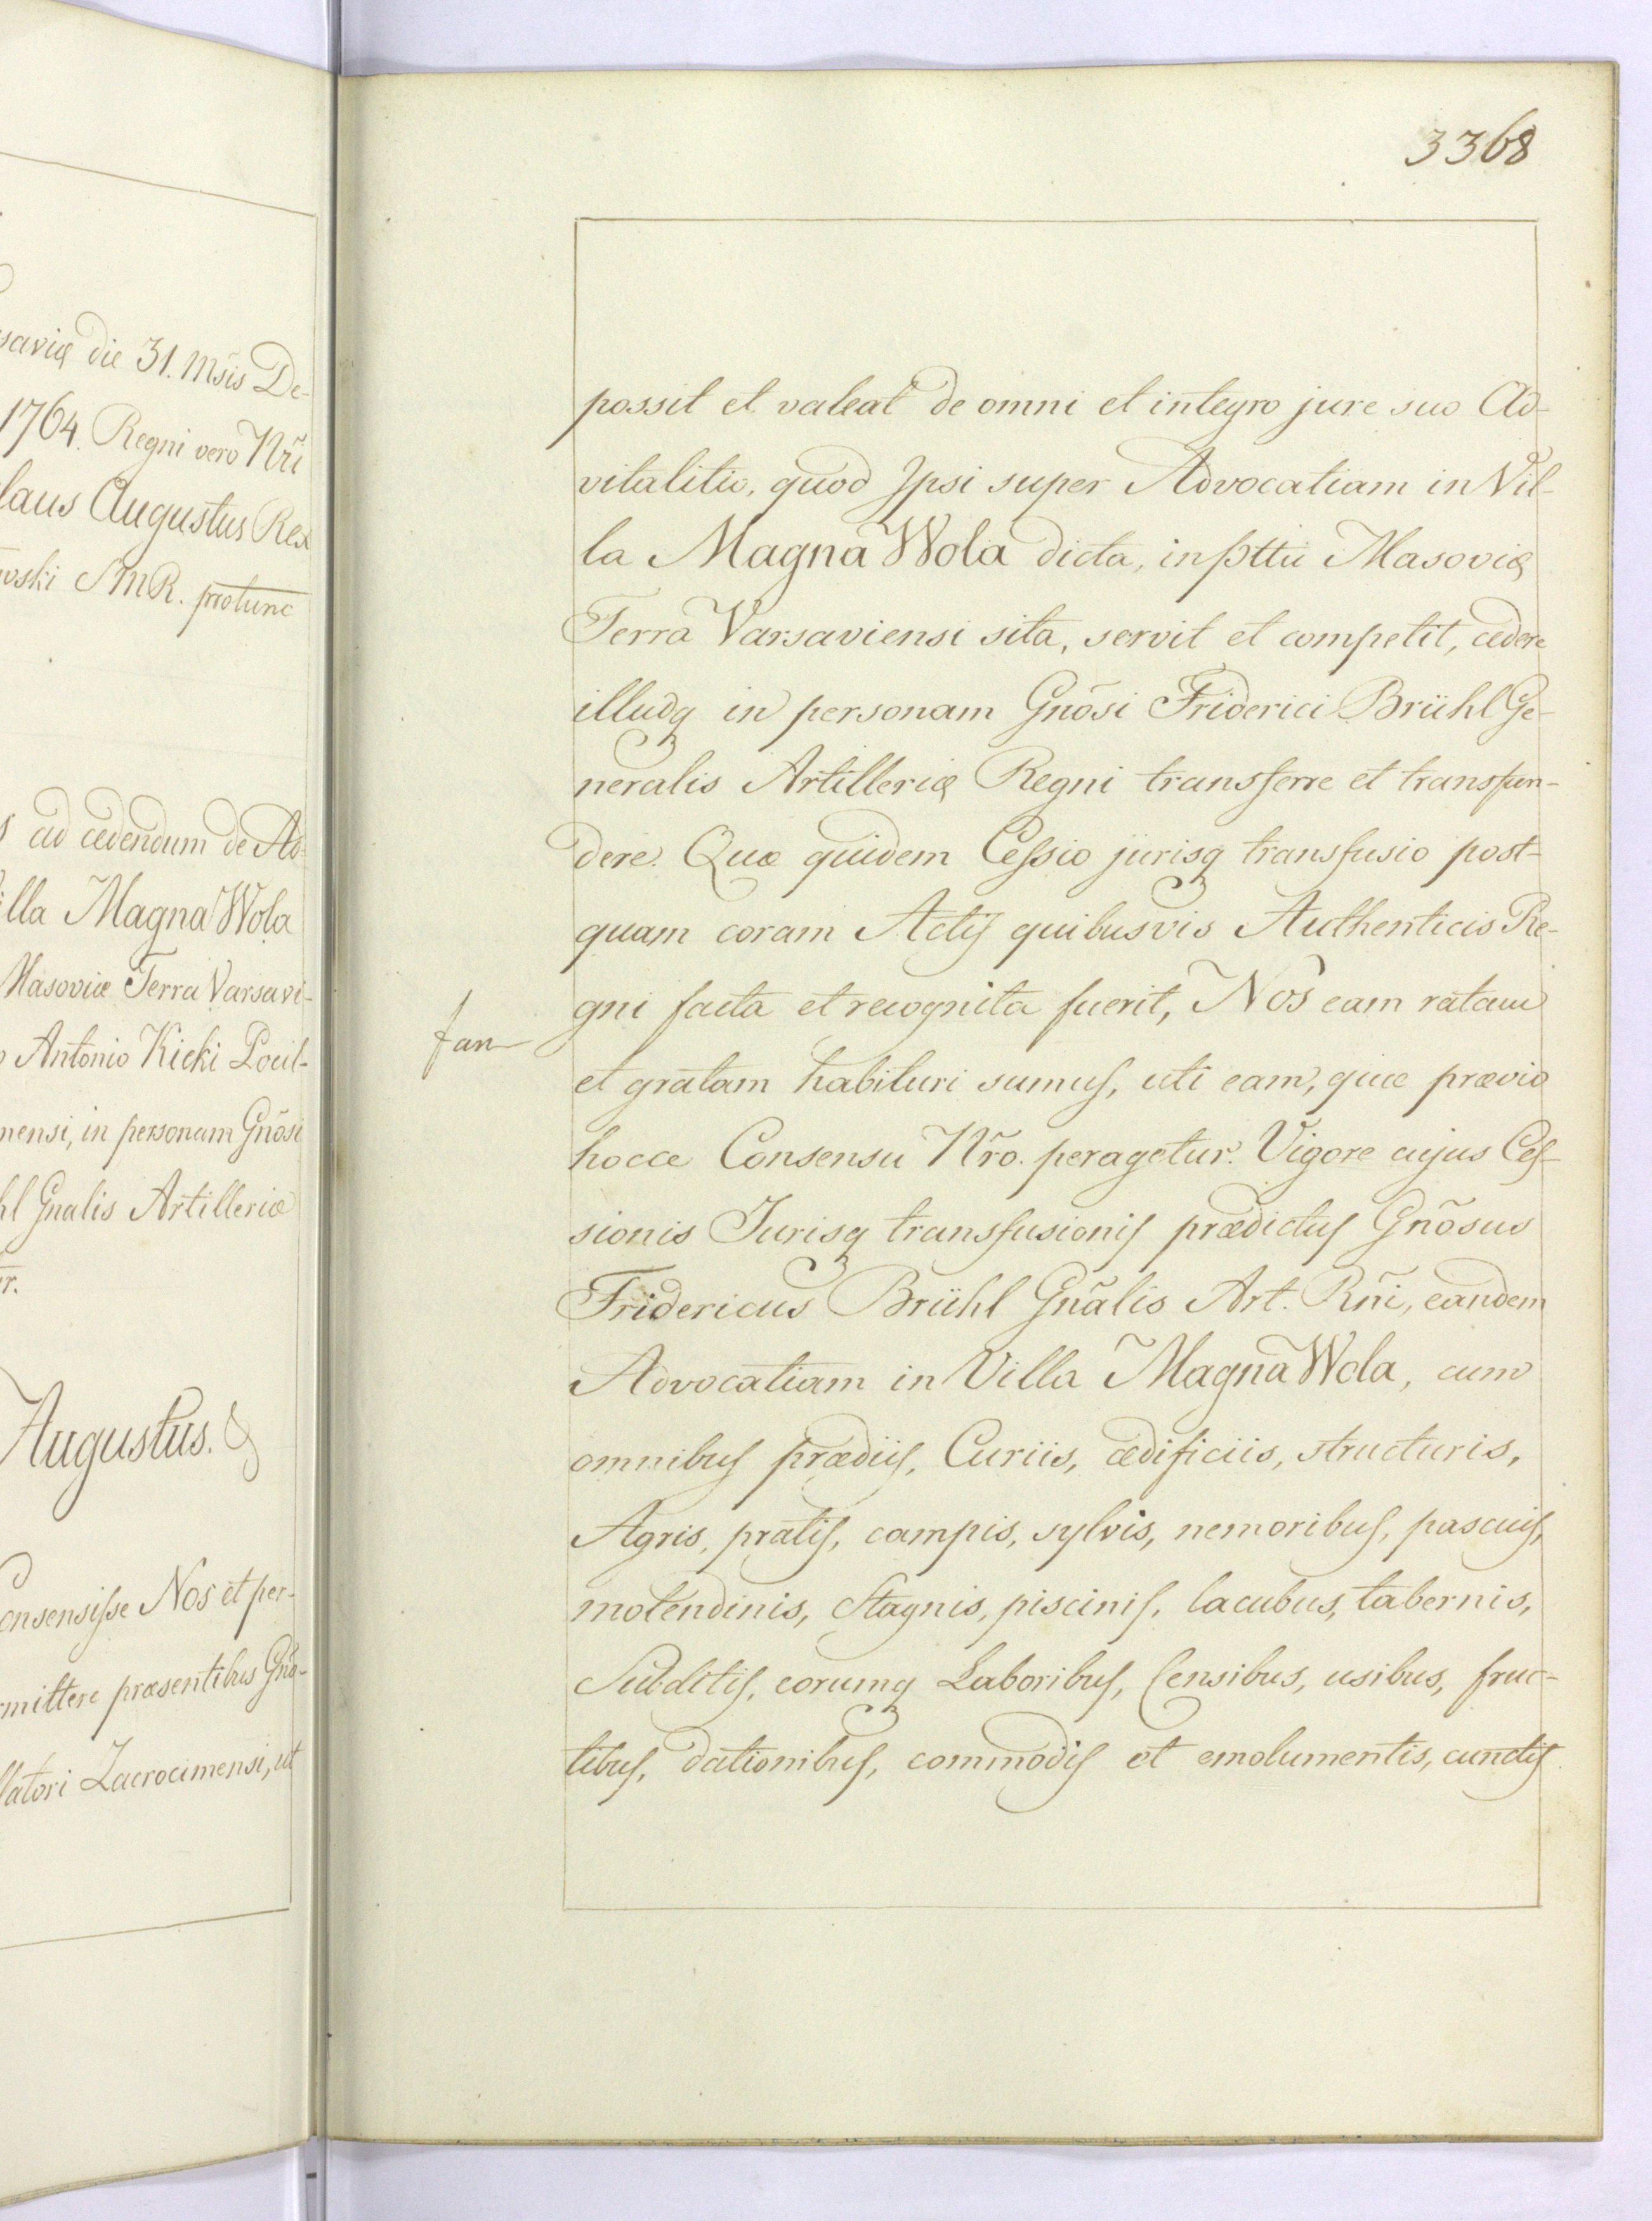 saviæ die 31. Msis De-
1764. Regni vero Nri
laus Augustus Rex
wski SMR. protunc
ad cedendum de Ad-
illa Magna Wola
Masoviæ Terra Varsavi-
Antonio Kicki Pocil-
mensi, in personam Gnõsi
hl Gnalis Artilleriæ
Augustus.
onsensisse Nos et per-
mittere præsentibus Gno-
llatori Zacrocimensi, ut
3368
possit et valeat de omni et integro jure suo Ad-
vitalitio, quod Ipsi super Advocatiam in Vil-
la Magna Wola dicta, in Pttu Masoviæ
Terra Varsaviensi sita, servit et competit, cedere
illudq in personam Gnõsi Friderici Brühl Ge-
neralis Artilleriæ Regni transferre et transfun-
dere. Quæ quidem Cessio jurisq transfusio post-
quam coram Actis quibusvis Authenticis Re-
gni facta et recognita fuerit, Nos eam ratam
fan
et gratam habituri sumus, uti eam, quæ prævio
hocce Consensu Nro. peragetur. Vigore cujus Ces-
sionis Jurisq transfusionis prædictus Gnõsus
Fridericus Brühl Gnãlis Art. Rñi, eandem
Advocatiam in Villa Magna Wola, cum
omnibus prædiis, Curiis, ædificiis, structuris,
Agris, pratis, campis, sylvis, nemoribus, pascuis,
molendinis, Stagnis, piscinis, lacubus, tabernis,
Subditis, eorumq Laboribus, Censibus, usibus, fruc-
tibus, dationibus, commodis et emolumentis, cunctis